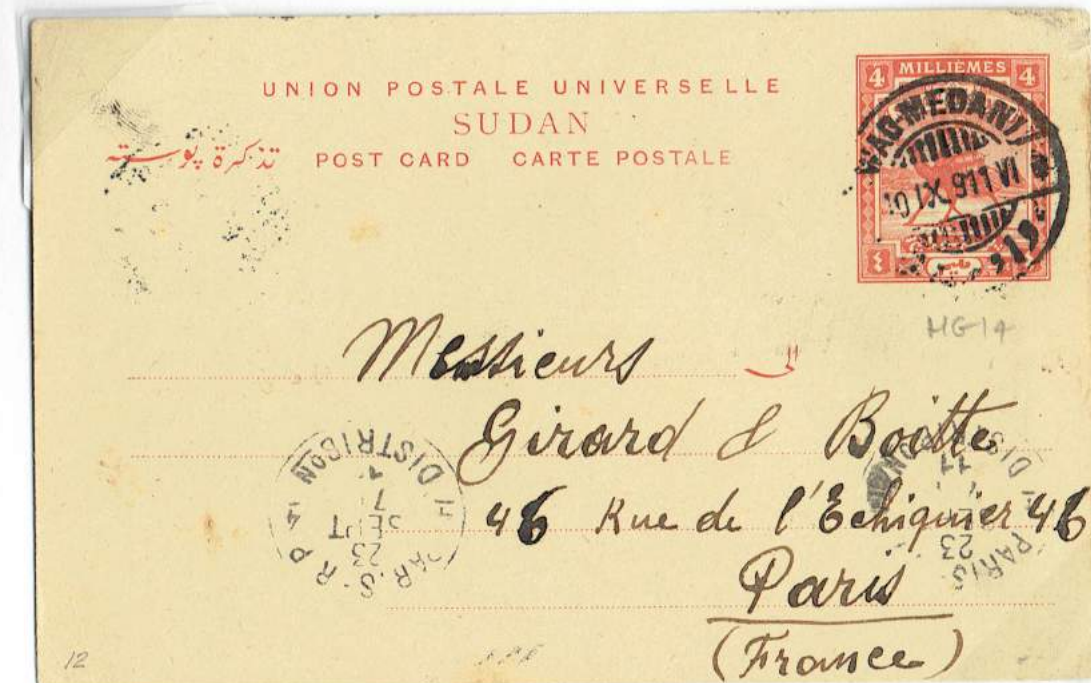 UNION POSTALE UNIVERSELLE
SUDAN
تذكرة پوسته POST CARD CARTE POSTALE
4 MILLIÈMES 4
WAD-MEDANI
٤
HG14
Messieurs
Girard & Boitte
46 Rue de l'Echiquier 46
Paris
(France)
PARIS R P 4
DISTRIBON
23
SEPT
PARIS
23
11
12